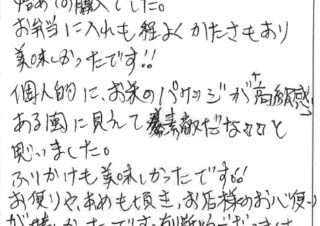 始めての購入でした。
お弁当に入れも程よくかたさもあり
美味しかったです!!
個人的に、お米のパッケージが高級感
ある風に見えて素敵だな♡♡と
思いました。
ふりかけも美味しかったです!!
お便りや、あめも頂き、お店様のお心使い
が嬉しかったです。